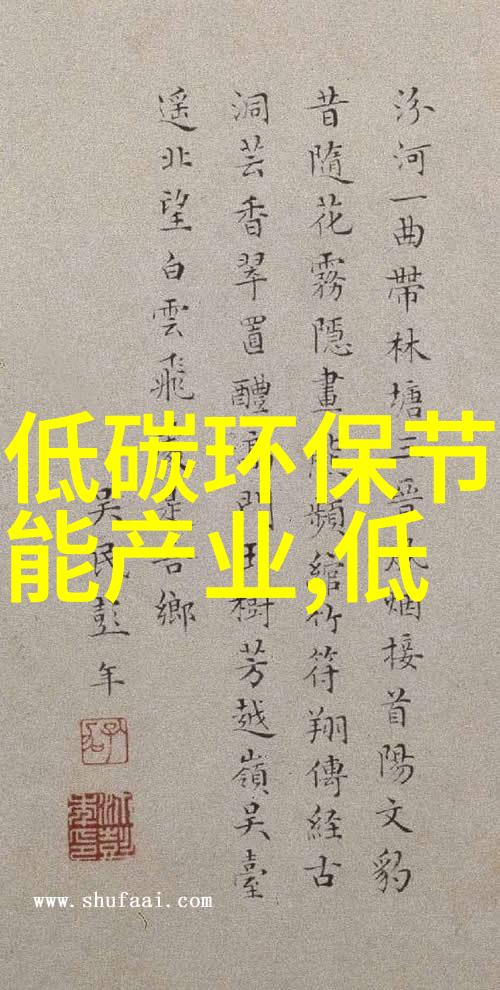 低碳环保节
能产业,低
汾河一曲帶林塘三晉風烟接首陽文豹
昔隨花霧隱畫熊頻綰竹符翔傳經古
洞芸香翠置醴門玉樹芳越嶺吴臺
遥北望白雲飛是吾鄉
吴民彭年
www.shufaai.com